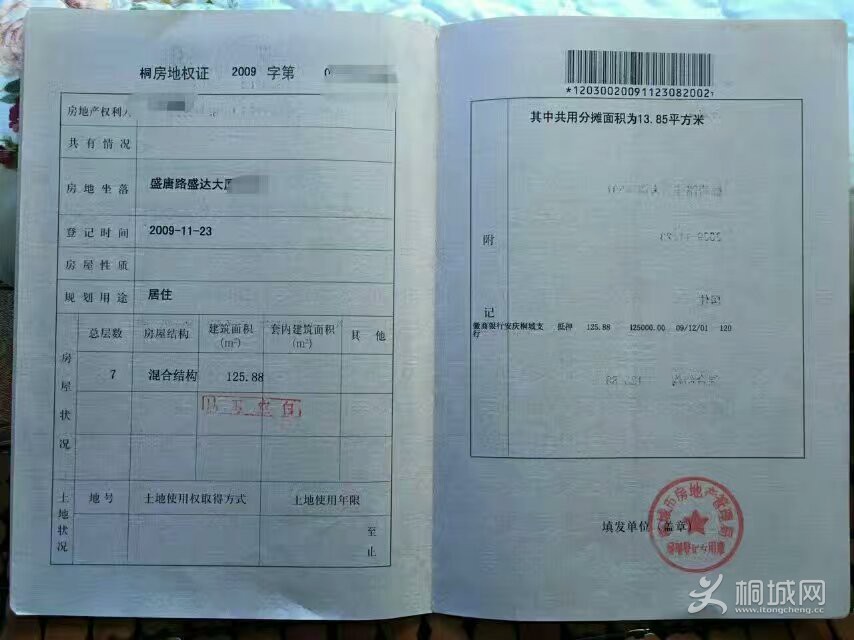 桐房地权证 2009 字第 0
房地产权利人
共有情况
房地坐落 盛唐路盛达大厦
登记时间 2009-11-23
房屋性质
规划用途 居住
房屋状况
总层数 房屋结构 建筑面积(m²) 套内建筑面积(m²) 其他
7 混合结构 125.88
以下空白
土地状况
地号 土地使用权取得方式 土地使用年限
至
止
*12030020091123082002*
附记
其中共用分摊面积为13.85平方米
徽商银行安庆桐城支行 抵押 125.88 125000.00 09/12/01 120
填发单位(盖章)
桐城市房地产管理局
桐城网
www.itongcheng.cc